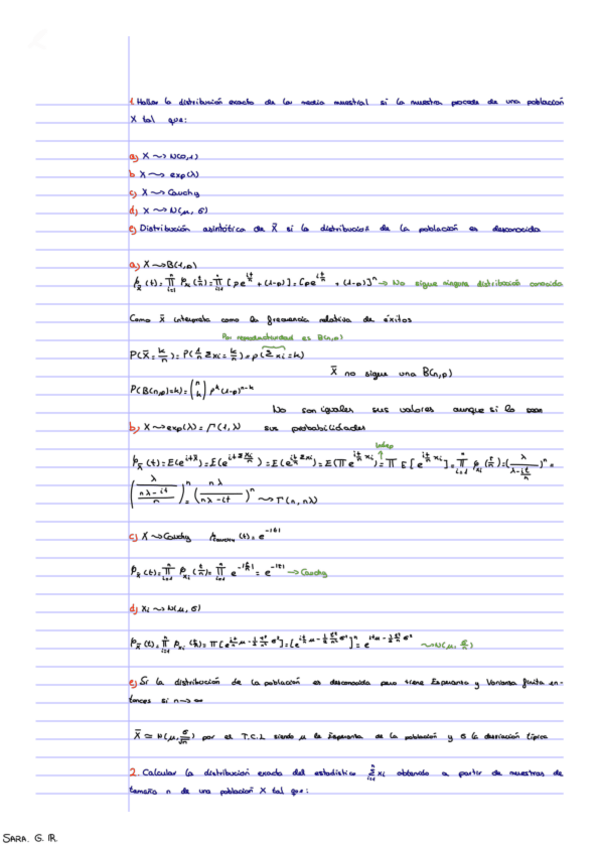 1. Hallar la distribución exacta de la media muestral si la muestra procede de una población
X tal que:
a) X ~> N(0,1)
b X ~> exp(λ)
c) X ~> Cauchy
d) X ~> N(μ, σ)
e) Distribución asintótica de X̄ si la distribucios de la población es desconocida
a) X ~> B(1,p)
φ_X̄(t) = ∏_{i=1}^n φ_{xi}(t/n) = ∏_{i=1}^n [pe^{it/n} + (1-p)] = [pe^{it/n} + (1-p)]^n → No sigue ninguna distribución conocida
Como x̄ interpreta como la frecuencia relativa de éxitos
Por reproductividad es B(n,p)
P(X̄ = k/n) = P(1/n Σxi = k/n) = P(Σxi = k)
X̄ no sigue una B(n,p)
P(B(n,p)=k) = (n k) p^k (1-p)^{n-k}
No son iguales sus valores aunque si lo sean
b) X ~> exp(λ) = Γ(1, λ) sus probabilidades
indep
φ_X̄(t) = E(e^{itx̄}) = E(e^{it Σxi/n}) = E(e^{i t/n Σxi}) = E(∏ e^{i t/n xi}) = ∏ E[e^{i t/n xi}] = ∏_{i=1}^n φ_{xi}(t/n) = (λ/(λ - it/n))^n =
(λ/((nλ - it)/n))^n = (nλ/(nλ - it))^n ~> Γ(n, nλ)
c) X ~> Cauchy (t) = e^{-|t|}
φ_X̄(t) = ∏_{i=1}^n φ_{xi}(t/n) = ∏_{i=1}^n e^{-|t/n|} = e^{-|t|} → Cauchy
d) Xi ~> N(μ, σ)
φ_X̄(t) = ∏_{i=1}^n φ_{xi}(t/n) = ∏ [e^{i t/n μ - 1/2 t²/n² σ²}] = [e^{i t/n μ - 1/2 t²/n² σ²}]^n = e^{itμ - 1/2 t²/n σ²}
e) Si la distribución de la población es desconocida pero tiene Esperanza y Varianza finita en-
tonces si n → ∞
X̄ ≈ N(μ, σ/√n) por el T.C.L siendo μ la Esperanza de la población y σ la desviación típica
2. Calcular la distribución exacta del estadístico Σ_{i=1}^n xi obtenido a partir de muestras de
tamaño n de una población X tal que:
SARA. G. R.